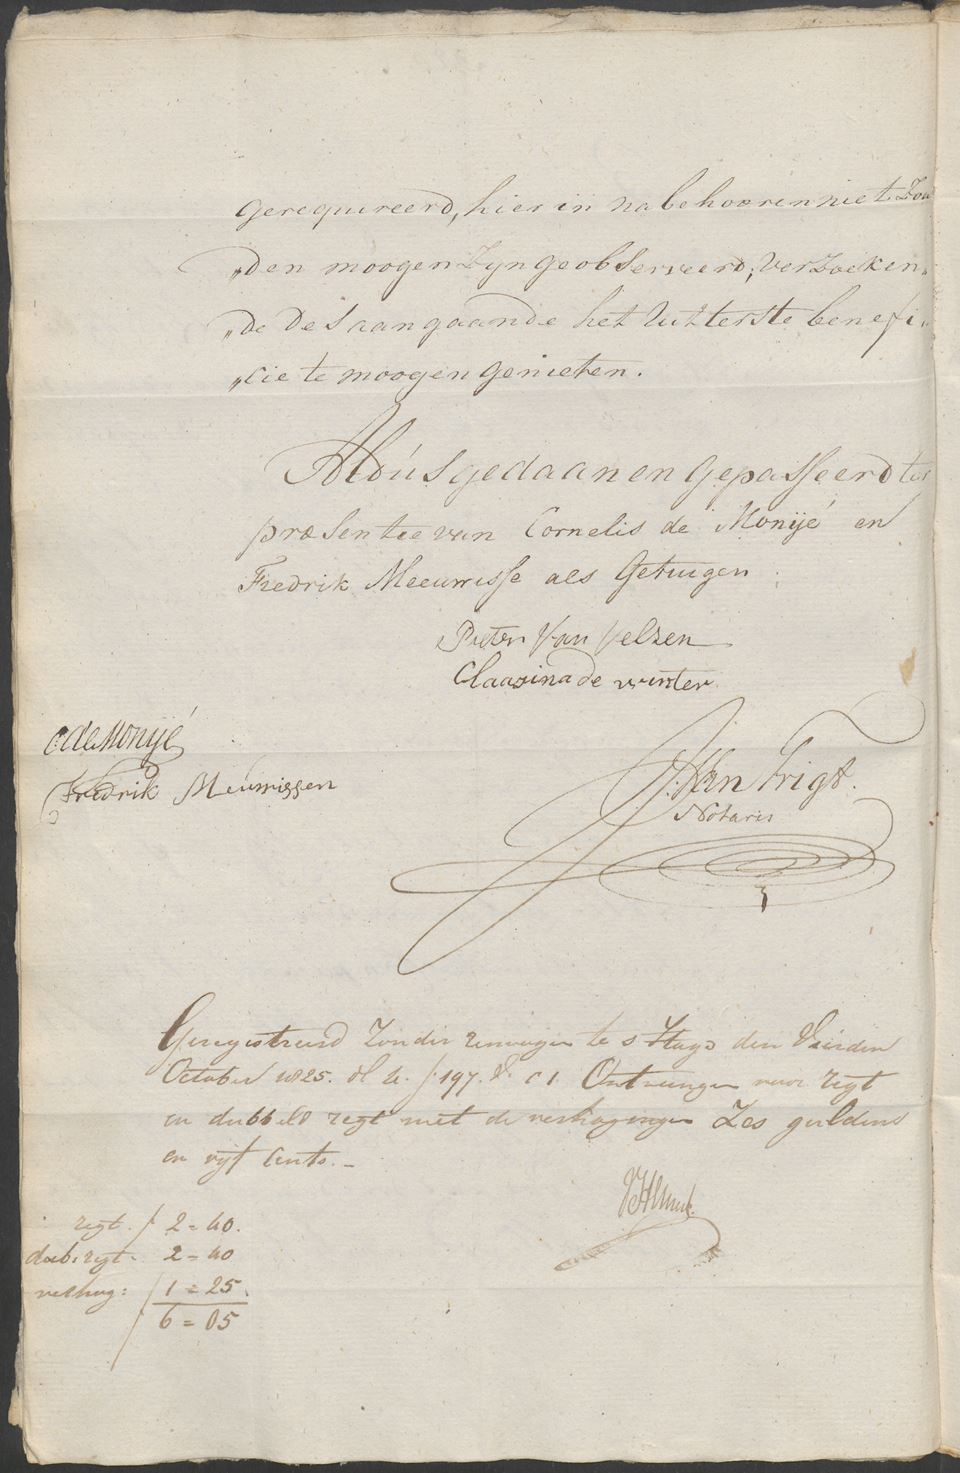 gerequireerd, hier in na behooren niet Zou
„den moogen Zyn geobserveerd, Verzoeken„
„de des aangaande het Uitterste benefi„
„cie te moogen genieten.
Aldús gedaan en gepasseerd ter
præsentie van Cornelis de Monijé en
Fredrik Meeuwisse als Getuigen
Pieter Van Velzen
Claasina de winter
C: de Monijé
Fredrik Meuwissen
J: Van Trigt.
Notaris
Geregistreerd Zonder renvoijen te s Hage den Vierden
October 1825. dl 4. f. 197. V. c 1 Ontvangen voor regt
en dubbeld regt met de verhogingen Zes guldens
en vyf Cents. _
regt. f 2 = 40.
dub: regt. 2 = 40
verhog: 1 = 25.
6 = 05